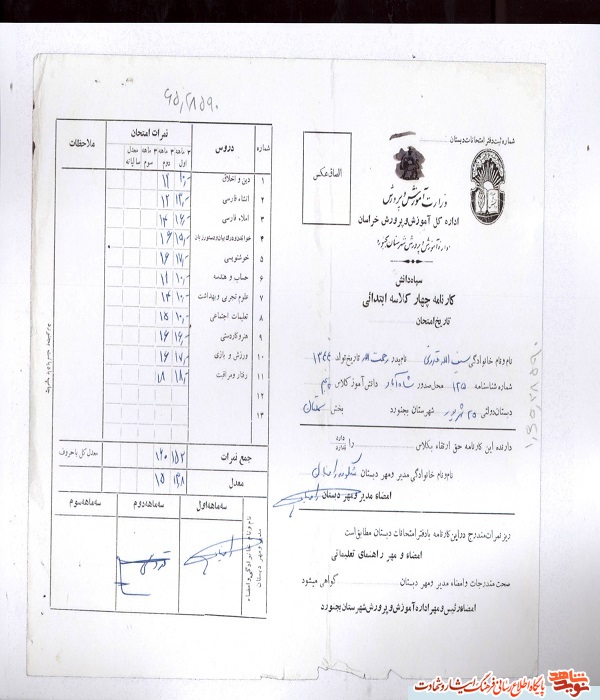 شماره ثبت دفتر امتحانات دبستان
الصاق عکس
وزارت آموزش و پرورش
اداره کل آموزش و پرورش خراسان
اداره آموزش و پرورش شهرستان بجنورد
سپاه دانش
کارنامه چهار کلاسه ابتدائی
تاریخ امتحان
نام و نام خانوادگی سیف اله قدرتی نام پدر رحمت اله تاریخ تولد ۱۳۴۴
شماره شناسنامه ۱۲۵ محل صدور شاه آباد دانش آموز کلاس
دبستان دولتی ۲۵ شهریور شهرستان بجنورد بخش سملقان
دارنده این کارنامه حق ارتقاء بکلاس را دارد ندارد
نام و نام خانوادگی مدیر و مهر دبستان
امضاء مدیر و مهر دبستان
ریز نمرات مندرج در این کارنامه با دفتر امتحانات دبستان مطابق است
امضاء و مهر راهنمای تعلیماتی
صحت مندرجات و امضاء مدیر و مهر دبستان گواهی میشود
امضاء رئیس و مهر اداره آموزش و پرورش شهرستان بجنورد
شماره دروس نمرات امتحان ملاحظات
۳ ماهه اول ۳ ماهه دوم ۳ ماهه سوم معدل سالیانه
۱ دین و اخلاق ۱۰ ۱۲
۲ انشاء فارسی ۱۳ ۱۲
۳ املاء فارسی ۱۶ ۱۴
۴ خواندن و درک زبان و دستور زبان ۱۵ ۱۶
۵ خوشنویسی ۱۷ ۱۶
۶ حساب و هندسه ۱۰ ۱۱
۷ علوم تجربی و بهداشت ۱۰ ۱۴
۸ تعلیمات اجتماعی ۱۰ ۱۵
۹ هنر و کاردستی ۱۶ ۱۶
۱۰ ورزش و بازی ۱۷ ۱۶
۱۱ رفتار و مراقبت ۱۸ ۱۸
۱۲
۱۳
جمع نمرات ۱۵۲ ۱۶۰ معدل کل با حروف
معدل ۱۳/۸ ۱۵
نام و نام خانوادگی و امضاء مدیر و مهر دبستان
سه ماهه اول سه ماهه دوم سه ماهه سوم
نوید شاهد پایگاه اطلاع رسانی فرهنگ ایثار و شهادت